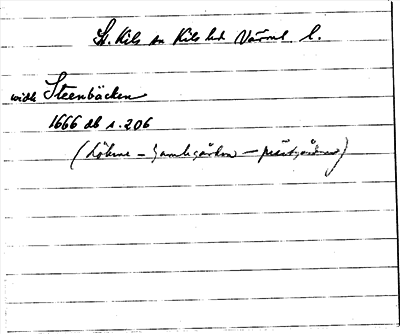 St. Kils sn Kils hd Värml l.
widh Steenbäcken
1666 db s. 206
(Löhne – gamlegården – prästgården)